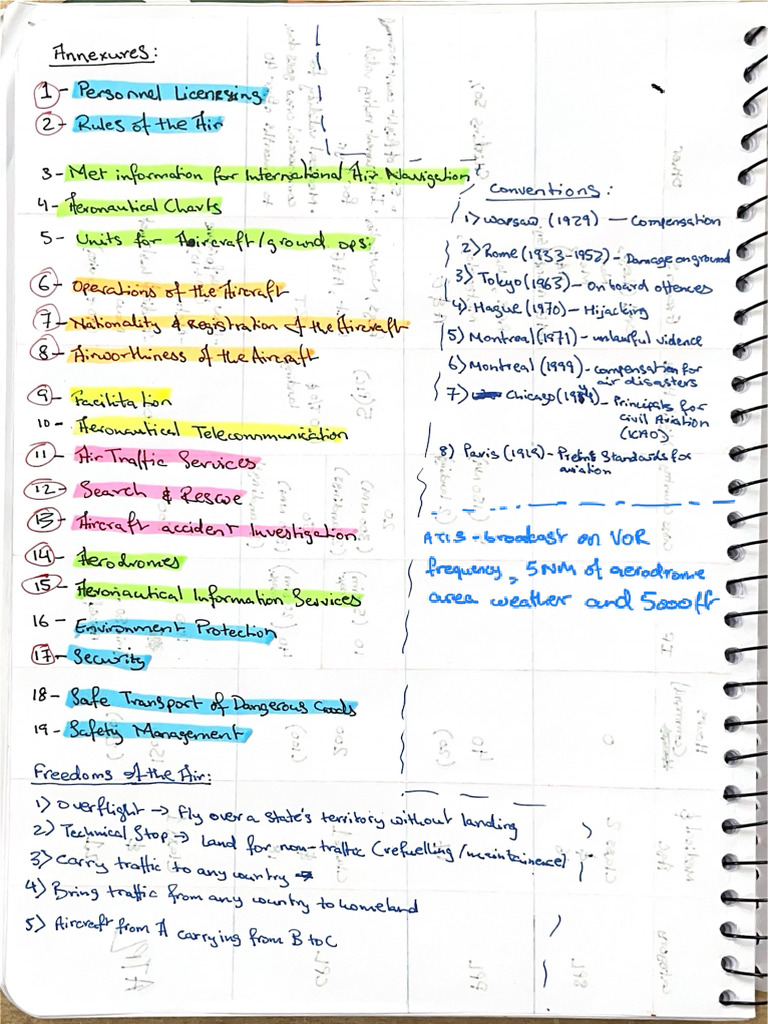 Annexures:
1 - Personnel Licensing
2 - Rules of the Air
3 - Met information for International Air Navigation
4 - Aeronautical Charts
5 - Units for Aircraft/ground ops.
6 - Operations of the Aircraft
7 - Nationality & Registration of the Aircraft
8 - Airworthiness of the Aircraft
9 - Facilitation
10 - Aeronautical Telecommunication
11 - Air Traffic Services
12 - Search & Rescue
13 - Aircraft accident Investigation
14 - Aerodromes
15 - Aeronautical Information Services
16 - Environment Protection
17 - Security
18 - Safe Transport of Dangerous Goods
19 - Safety Management
Conventions:
1) Warsaw (1929) — Compensation
2) Rome (1933-1952) - Damage on ground
3) Tokyo (1963) - On board offences
4) Hague (1970) - Hijacking
5) Montreal (1971) - unlawful violence
6) Montreal (1999) - compensation for
air disasters
7) Chicago (1944) - Principals for
civil Aviation
(ICAO)
8) Paris (1919) - Standards for
aviation
ATIS - broadcast on VOR
frequency, 5NM of aerodrome
area weather and 5000ft
Freedoms of the Air:
1) Overflight → Fly over a state's territory without landing
2) Technical Stop → Land for non-traffic (refuelling/maintainence)
3) Carry traffic to any country
4) Bring traffic from any country to homeland
5) Aircraft from A carrying from B to C